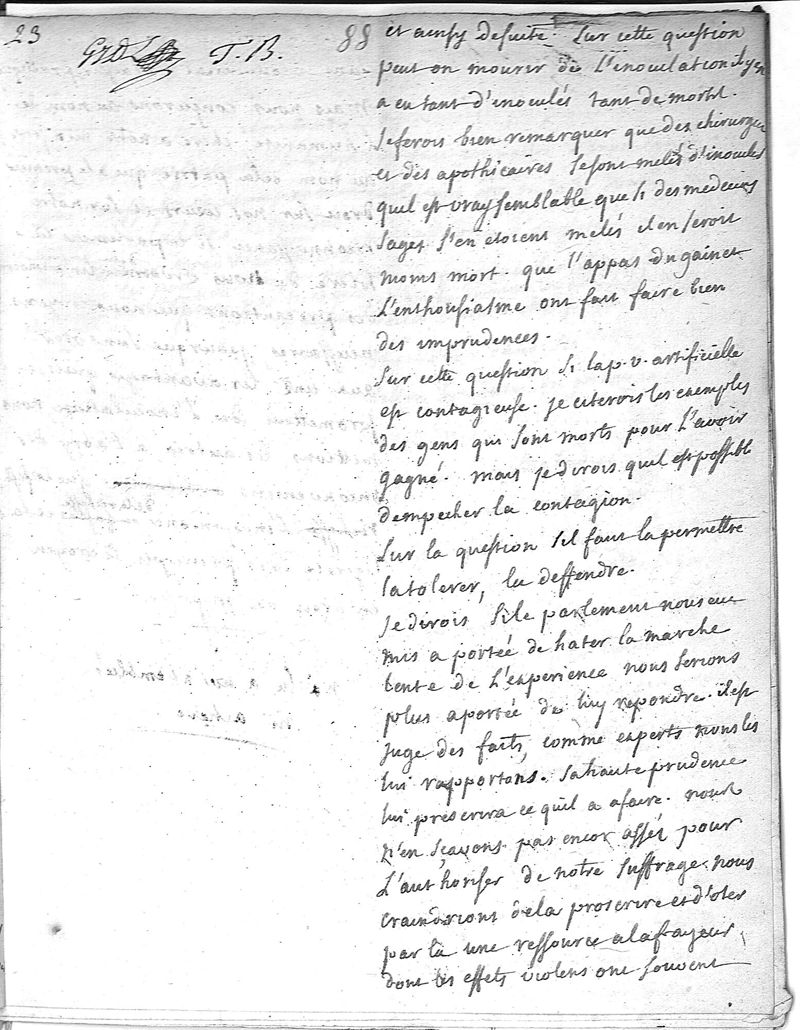 23
T. B.
88
et ainsy de suite. Sur cette question
peut on mourir de L'inoculation il y en
a eu tant d'inoculés tant de morts.
Je ferois bien remarquer que des chirurgiens
et des apothicaires se sont melés d'inoculer
quil est vray semblable que si des medecins
sages s'en etoient melés il en seroit
moins mort. que l'appas du gain et
L'enthousiasme ont fait faire bien
des imprudences.
Sur cette question si la p. v. artificielle
est contagieuse. je citerois les exemples
des gens qui sont morts pour L'avoir
gagné. mais je dirois quil est possible
dempecher la contagion.
Sur la question sil faut la permettre
la tolerer, la deffendre.
Je dirois si le parlement nous eut
mis a portée de hater la marche
lente de L'experience nous serions
plus a portée de luy repondre. il est
juge des faits, comme experts nous les
lui rapportons. Sa haute prudence
lui prescrira ce quil a a faire. nous
n'en sçavons pas encor assés pour
L'authoriser de notre suffrage. nous
craindrions de la proscrire et d'oter
par la une ressource a la frayeur,
dont les effets violens ont souvent